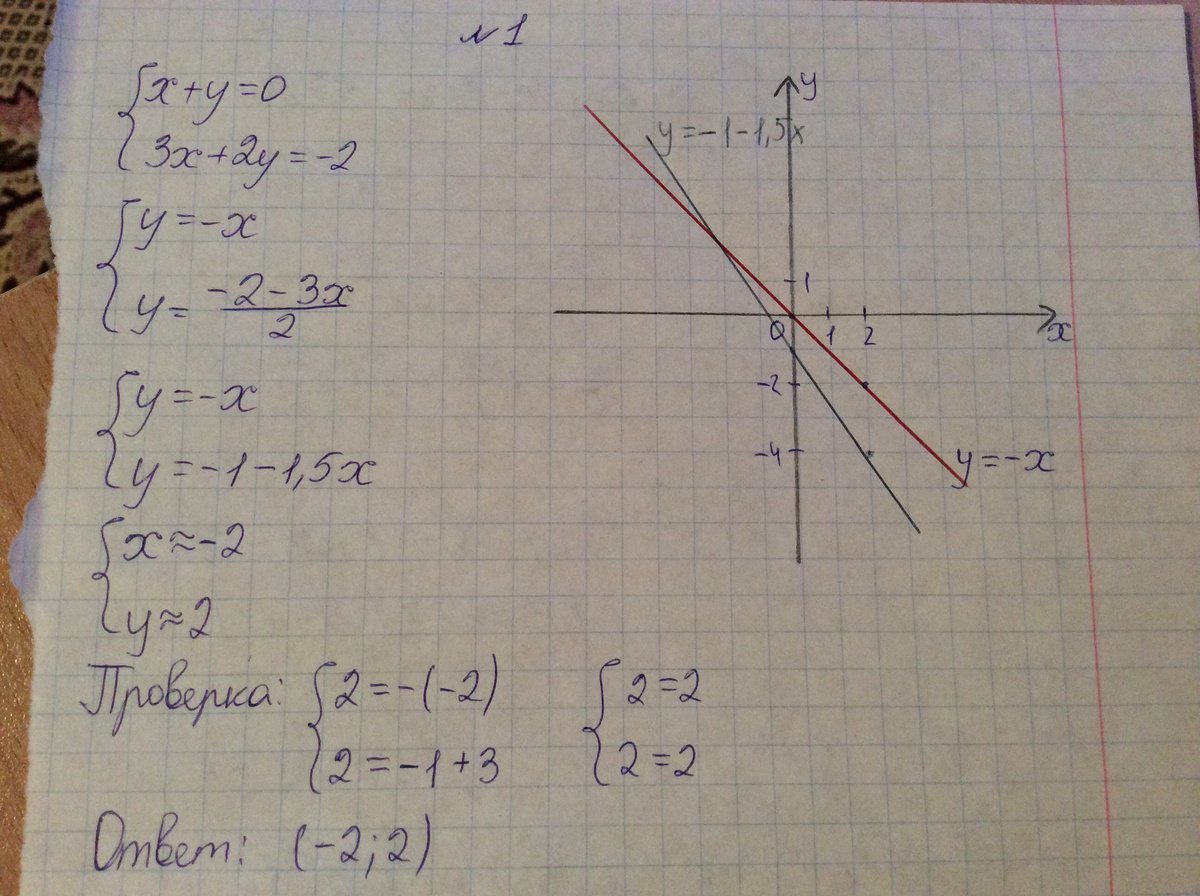 №1
{x+y=0
{3x+2y=-2
{y=-x
{y= (-2-3x)/2
{y=-x
{y=-1-1,5x
{x≈-2
{y≈2
Проверка: {2=-(-2) {2=2
{2=-1+3 {2=2
Ответ: (-2;2)
y
y=-1-1,5x
1
0 1 2 x
-2
-4
y=-x